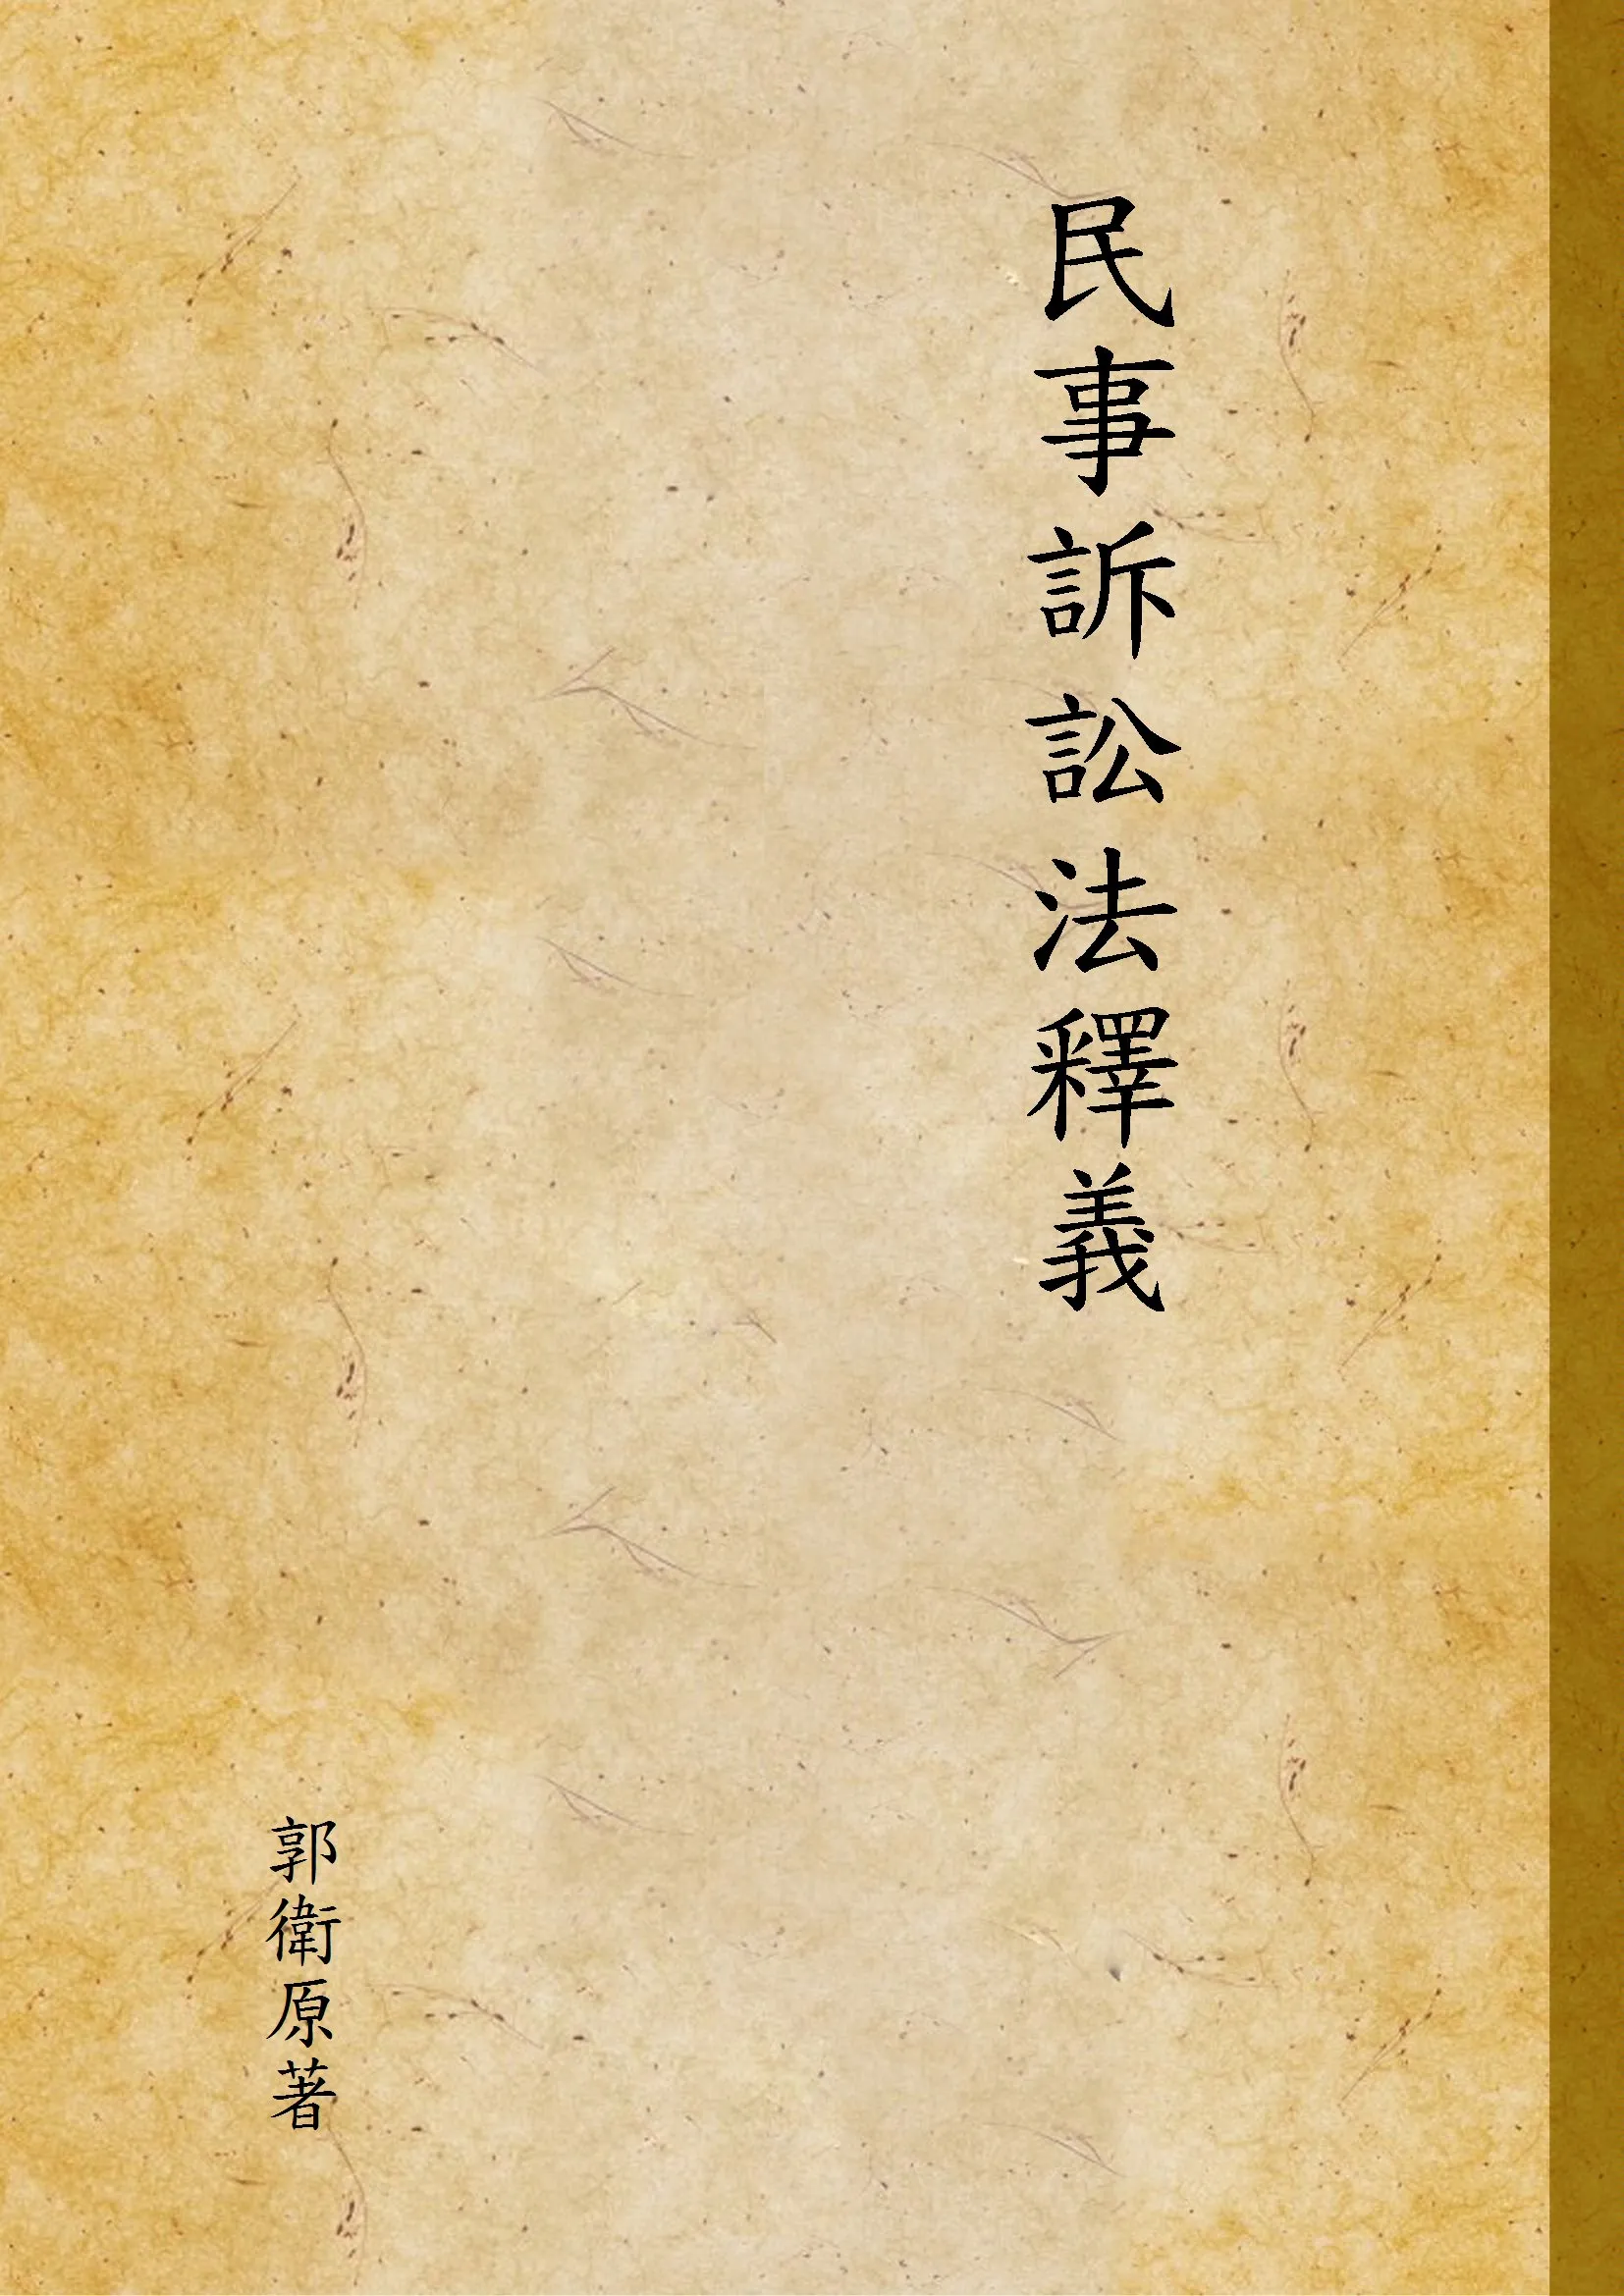 民事訴訟法釋義
郭衛原著